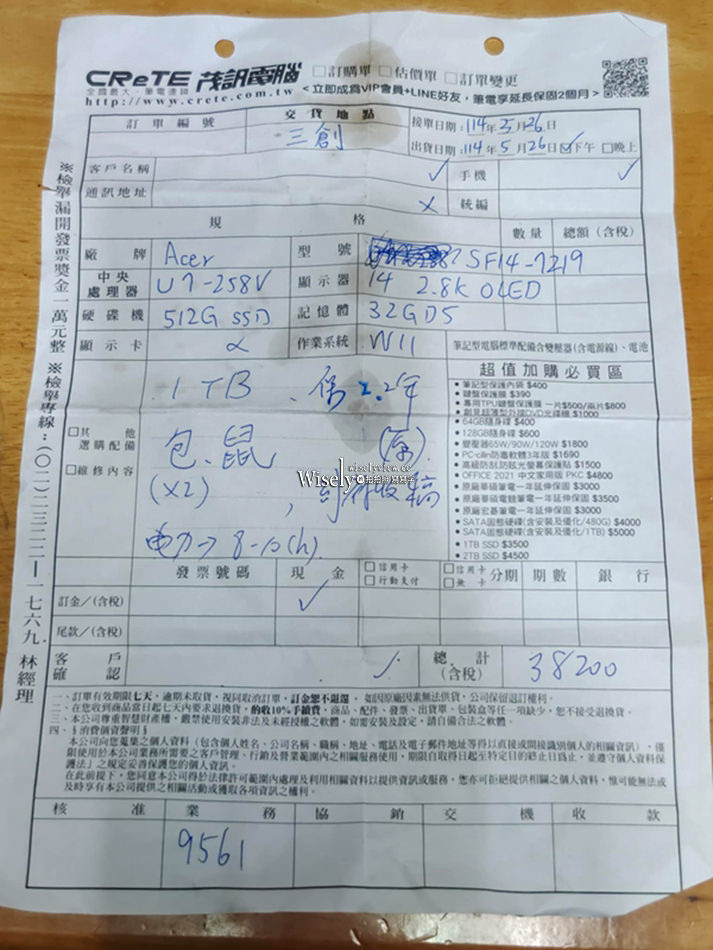 CReTE 茂訊電腦 □訂購單 □估價單 □訂單變更
全國最大、筆電連鎖
http://www.crete.com.tw <立即成為VIP會員+LINE好友,筆電享延長保固2個月>
訂單編號 交貨地點 接單日期:114年5月26日
三創 出貨日期:114年5月26日 ☑下午 □晚上
客戶名稱 ✓ 手機 ✓
通訊地址 x 統編
規格 數量 總額(含稅)
廠牌 Acer 型號 SF14-7219
中央處理器 U7-258V 顯示器 14 2.8K OLED
硬碟機 512G SSD 記憶體 32G D5
顯示卡 x 作業系統 W11 筆記型電腦標準配備含變壓器(含電源線)、電池
超值加購必買區
• 筆記型保護內袋 $400
• 鍵盤保護膜 $390
• 專用TPU鍵盤保護膜 一片$500/兩片$800
• 創見超薄型外接DVD光碟機 $1000
• 64GB隨身碟 $400
• 128GB隨身碟 $600
• 變壓器65W/90W/120W $1800
• PC-cillin防毒軟體3年版 $1690
• 高級防刮.防眩光螢幕保護貼 $1500
• OFFICE 2021 中文家用版 PKC $4800
• 原廠華碩筆電一年延伸保固 $3000
• 原廠華碩電競筆電一年延伸保固 $3500
• 原廠宏碁筆電一年延伸保固 $3000
• SATA固態硬碟(含安裝及優化/480G) $4000
• SATA固態硬碟(含安裝及優化/1TB) $5000
• 1TB SSD $3500
• 2TB SSD $4500
□其他選購配備
□維修內容
1TB、保2.2年
包.鼠
(x2)
電力→8-10(h)
wiselyview.cc
Wisely拍拍照寫寫字
發票號碼 現金 □信用卡 □行動支付 □信用卡 □無卡 分期 期數 銀行
訂金/(含稅) ✓
尾款/(含稅)
客戶確認 ✓ 總計(含稅) 38200
一、訂單有效期限七天,逾期未取貨,視同取消訂單,訂金恕不退還,如因原廠因素無法供貨,公司保留退訂權利。
二、在您收到商品當日起七天內要求退換貨,酌收10%手續費,商品、配件、發票、出貨單、包裝盒等任一項缺少,恕不接受退換貨。
三、本公司尊重智慧財產權,嚴禁使用安裝非法及未經授權之軟體,如需安裝及設定,請自備合法之軟體。
四、§消費個資聲明§
本公司向您蒐集之個人資料(包含個人姓名、公司名稱、職稱、地址、電話及電子郵件地址等得以直接或間接識別個人的相關資訊),僅
限使用於本公司業務所需要之客戶管理、行銷及營業範圍內之相關服務使用,期限自取得日起至特定目的終止日為止,並遵守個人資料保
護法」之規定妥善保護您的個人資訊。
在此前提下,您同意本公司得於法律許可範圍內處理及利用相關資料以提供資訊或服務,您亦可拒絕提供相關之個人資料,惟可能無法或
及時享有本公司提供之相關活動或獲取各項資訊之權利。
核准 業務 協銷 交機 收款
9561
※檢舉漏開發票獎金一萬元整 ※檢舉專線:(〇二)二三二二一一七六九 林經理